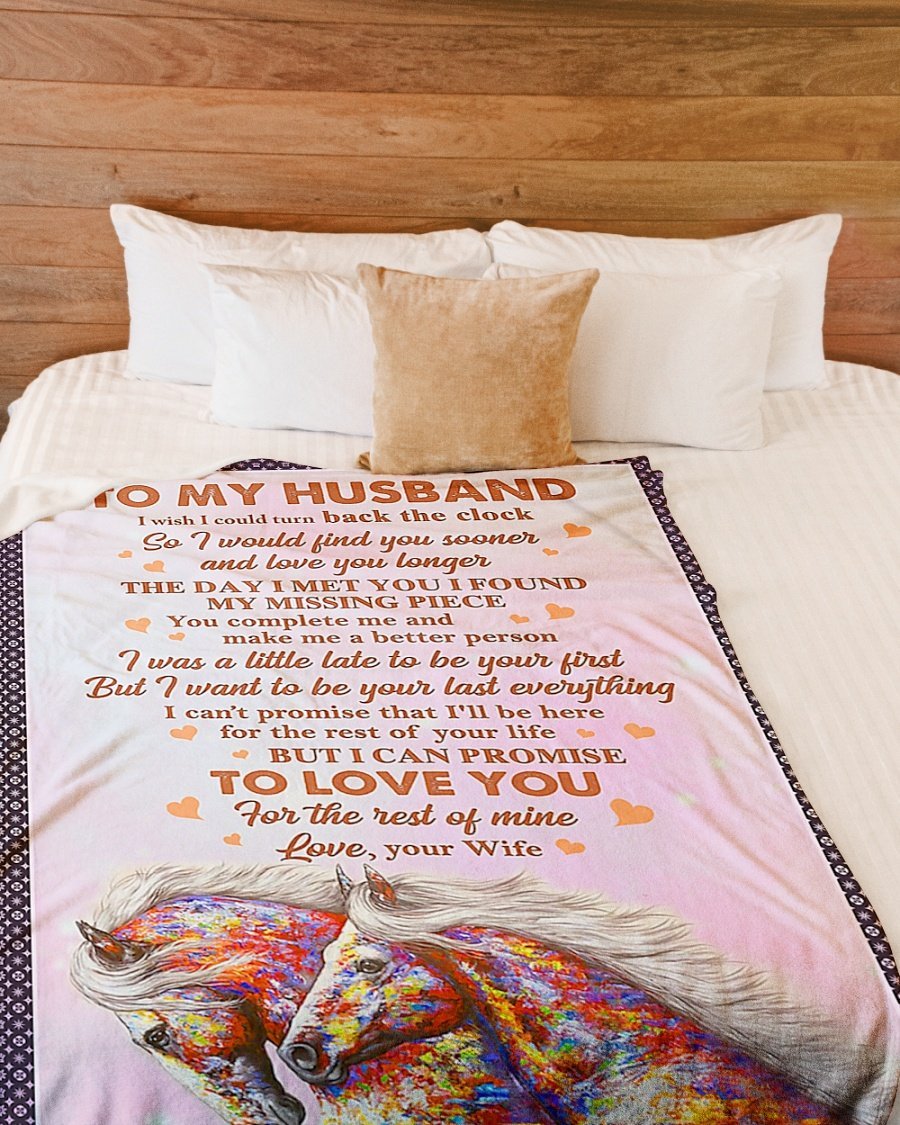 TO MY HUSBAND
I wish I could turn back the clock
So I would find you sooner
and love you longer
THE DAY I MET YOU I FOUND
MY MISSING PIECE
You complete me and
make me a better person
I was a little late to be your first
But I want to be your last everything
I can't promise that I'll be here
for the rest of your life
BUT I CAN PROMISE
TO LOVE YOU
For the rest of mine
Love, your Wife